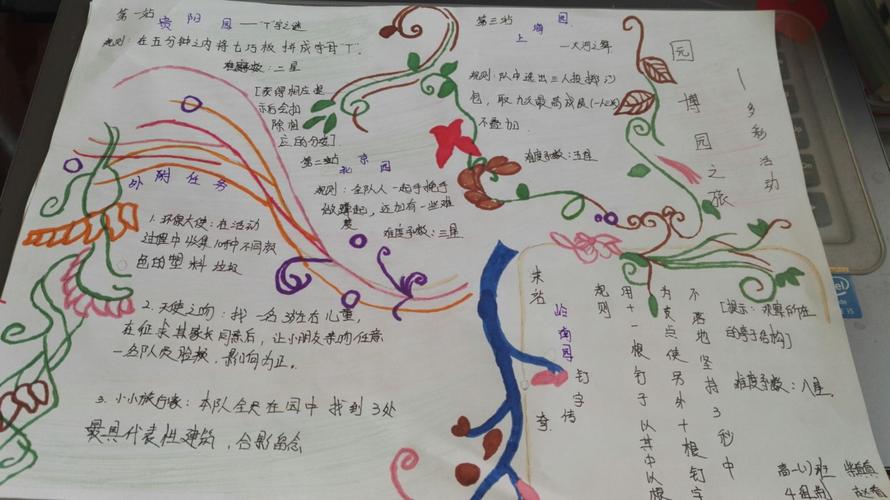 第一站 贵阳园 ——丁字之谜
规则：在五分钟之内将七巧板拼成字母"T".
难度系数：二星
[获得相应提
示后会扣
除相
应的分数]
第二站 北京园
规则：全队人一起手挽手
做蹲起，还加有一些难
度
难度系数：三星
第三站 上海园
—大河之舞
规则：队中选出三人投掷沙
包，取九次最高成绩(一人三次)
不叠加.
难度系数：五星
园博园之旅
—多彩活动
外附任务
1. 环保大使：在活动
过程中收集10种不同颜
色的塑料垃圾
2. 天使之吻：找一名3岁左右儿童，
在征求其家长同意后，让小朋友亲吻任意
一名队员脸颊，影像为证。
3. 小小旅行家：本队全员在园中找到3处
最具代表性建筑，合影留念
末站 岭南园 钉字情
规则
用十一根钉子以其中以根
为支点使另外十根钉子
不落地坚持3秒中
[提示：观察所在
的亭子结构]
难度系数：八星.
高一(1)班
4组
intel